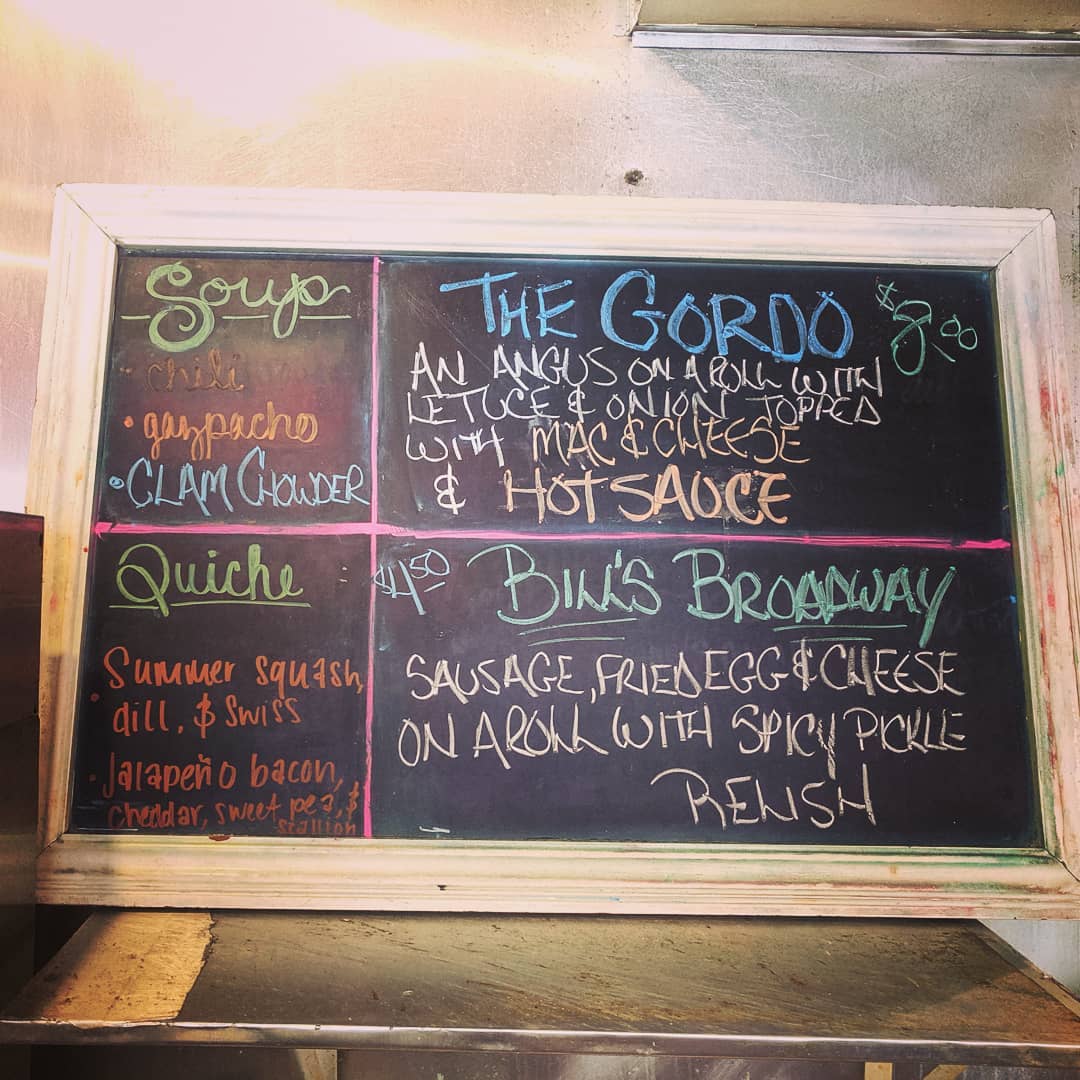 Soup
- chili
• gazpacho
• CLAM CHOWDER
THE GORDO
$8.00
AN ANGUS ON A ROLL WITH
LETUCE & ONION TOPPED
WITH MAC & CHEESE
& HOT SAUCE
Quiche
• Summer squash,
dill, & Swiss
• Jalapeño bacon,
cheddar, sweet pea, &
scallion
$4.50
BILL'S BROADWAY
SAUSAGE, FRIED EGG & CHEESE
ON A ROLL WITH SPICY PICKLE
RELISH